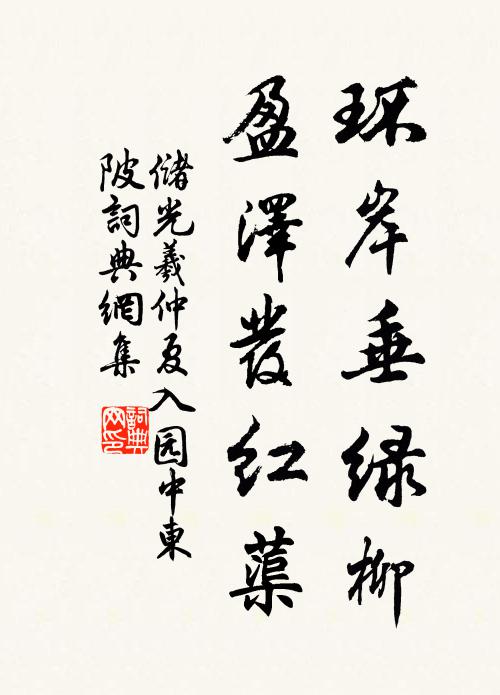 环岸垂绿柳
盈澤發红蕖
儲光羲仲夏入园中東
陂詞典網集
詞典网印